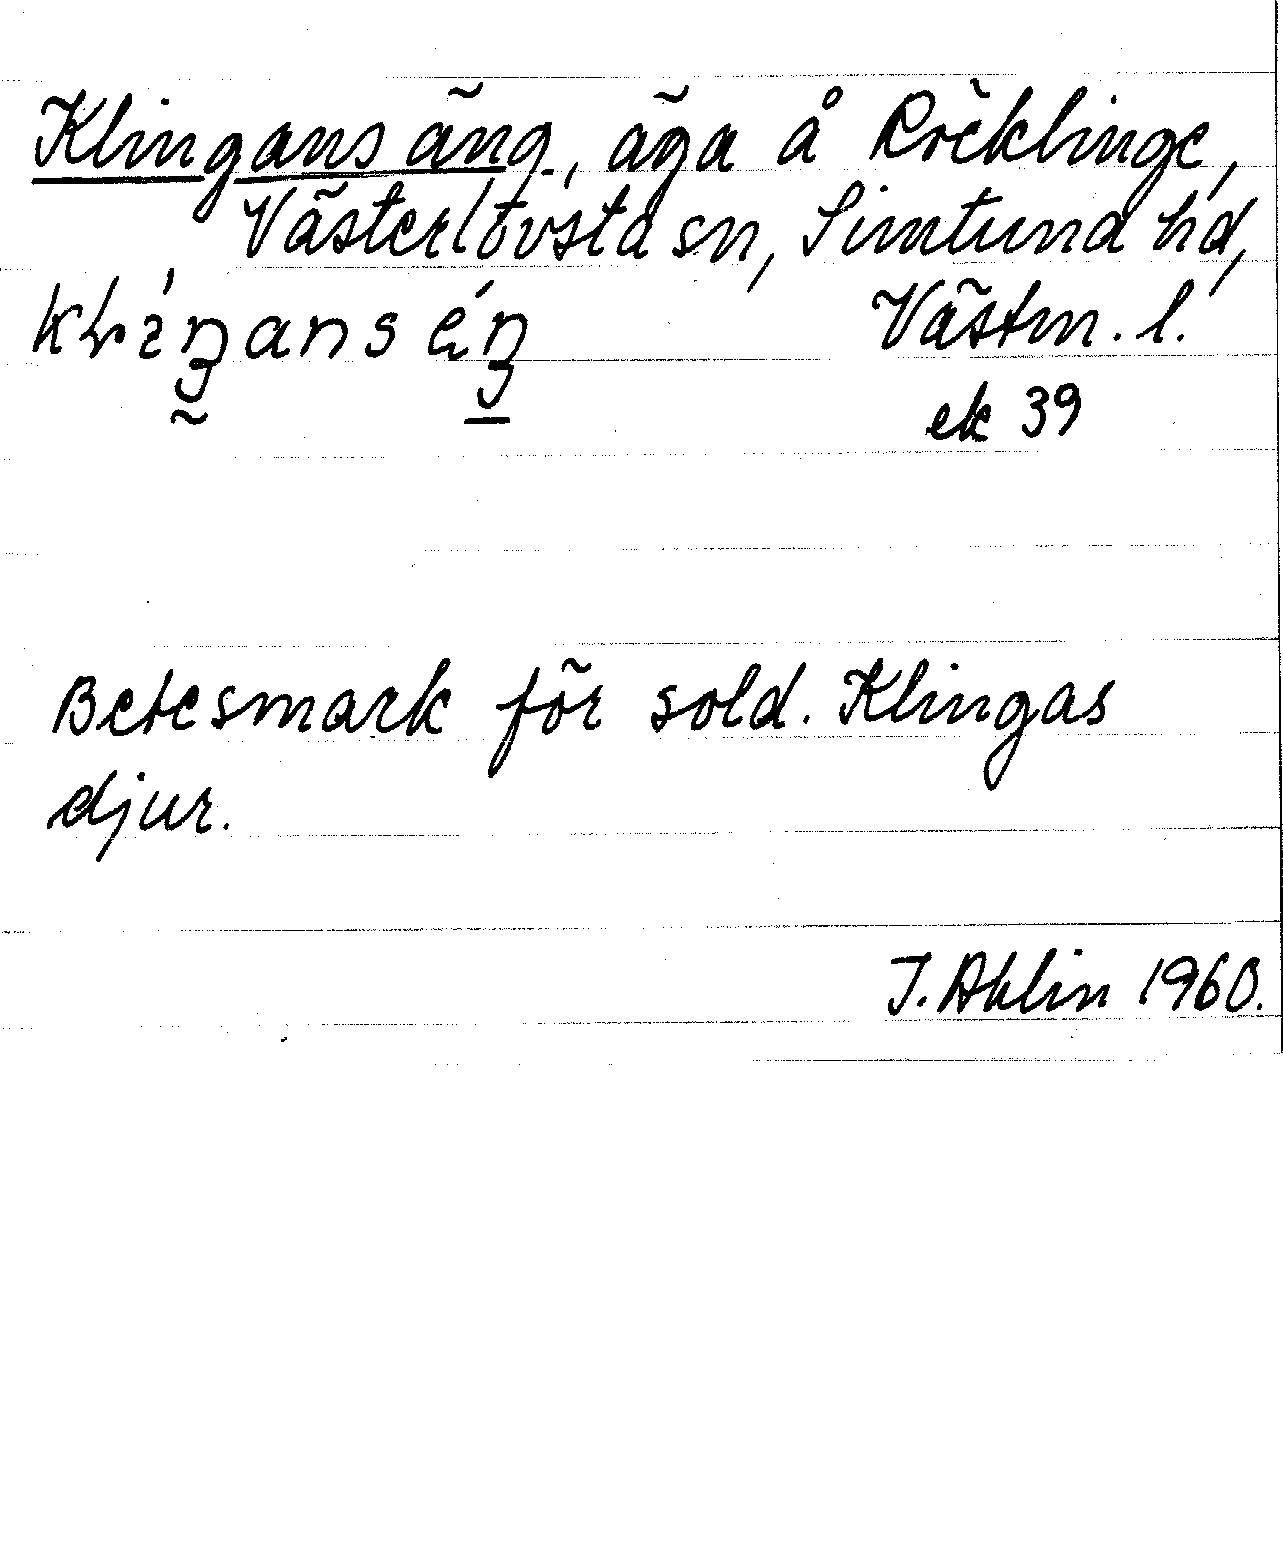 Klingans äng, äga å Röcklinge,
Västerlövsta sn, Simtuna hd,
Västm. l.
ek 39
Betesmark för sold. Klingas
djur.
J. Ahlin 1960.